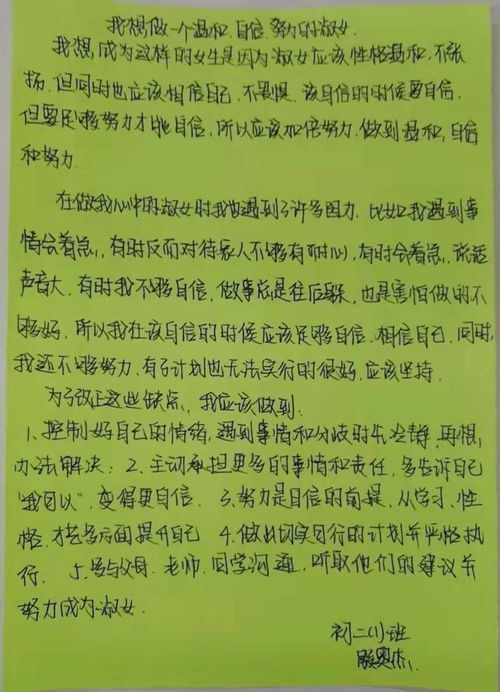 我想做一个温和.自信.努力的淑女.
我想,成为这样的女生是因为淑女应该性格温和,不张
扬.但同时也应该相信自己.不畏惧.该自信的时候要自信.
但要足够努力才能自信,所以应该加倍努力.做到温和,自信
和努力.
在做我心中的淑女时我也遇到了许多困力.比如我遇到事
情会着急,有时反而对待家人不够有耐心,有时会着急,说话
声音大.有时我不够自信,做事总是往后躲,也是害怕做的不
够好,所以我在该自信的时候应该足够自信.相信自己.同时,
我还不够努力.有了计划也无法实行的很好.应该坚持.
为了改正这些缺点,我应该做到.
1、控制好自己的情绪,遇到事情和分歧时先冷静,再想,
办法解决;2、主动承担更多的事情和责任,多告诉自己
"我可以",变得更自信. 3、努力是自信的前提、从学习、性
格.才艺多方面提升自己 4、做以切实可行的计划并严格执
行. 5、多与父母.老师.同学沟通,听取他们的建议并
努力成为淑女.
初二(1)班